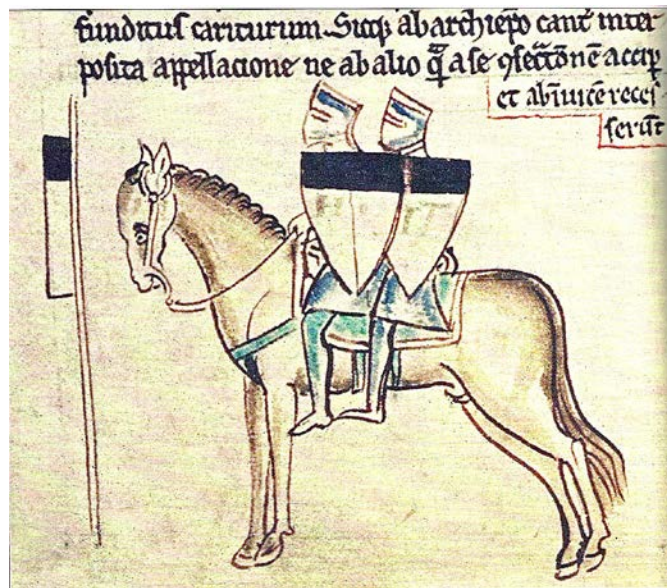 funditus cariturum. Sicq; ab archiepo cant inter
posita appellacione ne ab alio qͣ̄ a se ꝯsecͣtōnē accip
et abīuicē reces
serūt